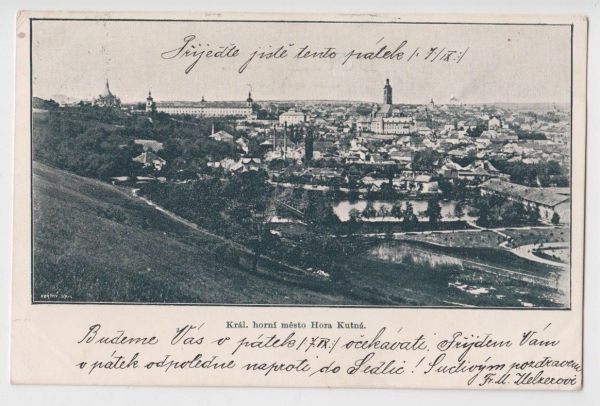 Přijeďte jistě tento pátek /: 7/IX :/
Král. horní město Hora Kutná.
Budeme Vás v pátek /: 7/IX :/ očekávati. Přijdem Vám
v pátek odpoledne naproti do Sedlic! Srdečným pozdravem
Fr. M.